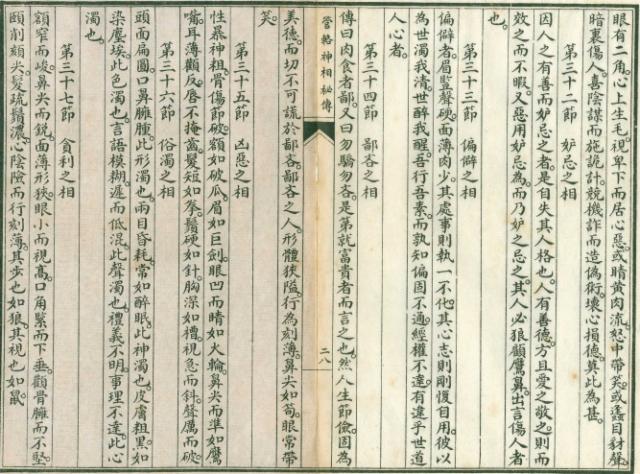 眼有二角。心上生毛。視卑下而居心惡。或睛黃肉流。怒中帶笑。或蠭目豺聲。
暗裏傷人。喜陰謀而施詭計。競機詐而造偽術。壞心損德。莫此為甚。
第三十二節 妒忌之相
因人之有善而妒忌之者。是自失其人格也。人有善德。方且愛之敬之。則而
效之而不暇。又惡用妒忌為。而乃妒之忌之。其人必狼顧鷹鼻。出言傷人者
也。
第三十三節 偏僻之相
偏僻者。眉豎聲硬。面薄肉少。其處事則執一不化。其心志則剛愎自用。彼以
為世濁我清。世醉我醒。吾行吾素。而孰知偏固不通。經權不達。有違乎世道
人心者。
第三十四節 鄙吝之相
傳曰肉食者鄙。又曰勿驕勿吝。是第就富貴者而言之也。然人生節儉。固為
管輅神相秘傳
二八
美德。而切不可謊於鄙吝。鄙吝之人。形體狹隘。行為刻薄。鼻尖如筍。眼常帶
笑。
第三十五節 凶惡之相
性暴神粗。骨傷節破。額如破瓜。眉如巨劍。眼凹而睛如火輪。鼻尖而準如鷹
嘴。耳薄顴反。唇不掩齒。髮短如拳。鬚硬如針。胸深如槽。視急而斜。聲厲而破。
第三十六節 俗濁之相
頭面扁圓。口鼻臃腫。此形濁也。兩目昏耗。常如醉眠。此神濁也。皮膚粗黑。如
染塵埃。此色濁也。言語模糊。遲而低混。此聲濁也。禮義不明。事理不達。此心
濁也。
第三十七節 貪利之相
額窄而峻。鼻尖而銳。面薄形狹。眼小而視高。口角緊而下垂。顴骨臃而不堅。
頤削頦尖。髮疏鬚濃。心陰險而行刻薄。其步也如狼。其視也如鼠。